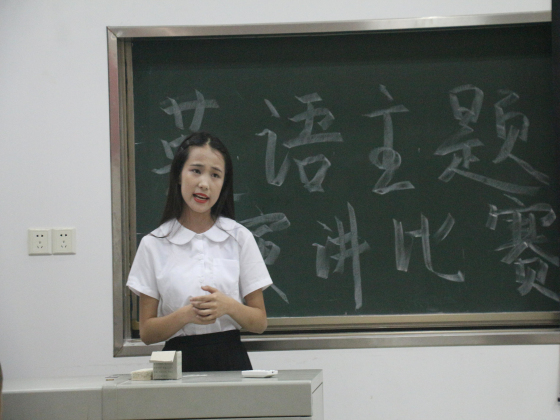 英语主题
演讲比赛